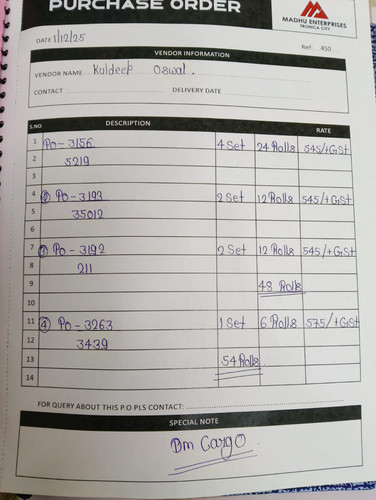 PURCHASE ORDER
MADHU ENTERPRISES
TRONICA CITY
DATE 1/12/25
Ref: 450
VENDOR INFORMATION
VENDOR NAME Kuldeep Oswal.
CONTACT DELIVERY DATE
S.NO DESCRIPTION RATE
1 PO-3156 4 Set 24 Rolls 545/+GST
2 5219
3
4 ② PO-3193 2 Set 12 Rolls 545/+GST
5 35012
6
7 ③ PO-3192 2 Set 12 Rolls 545/+GST
8 211
9 48 Rolls
10
11 ④ PO-3263 1 Set 6 Rolls 575/+GST
12 3439
13 54 Rolls
14
FOR QUERY ABOUT THIS P.O PLS CONTACT:
SPECIAL NOTE
Dm Cargo